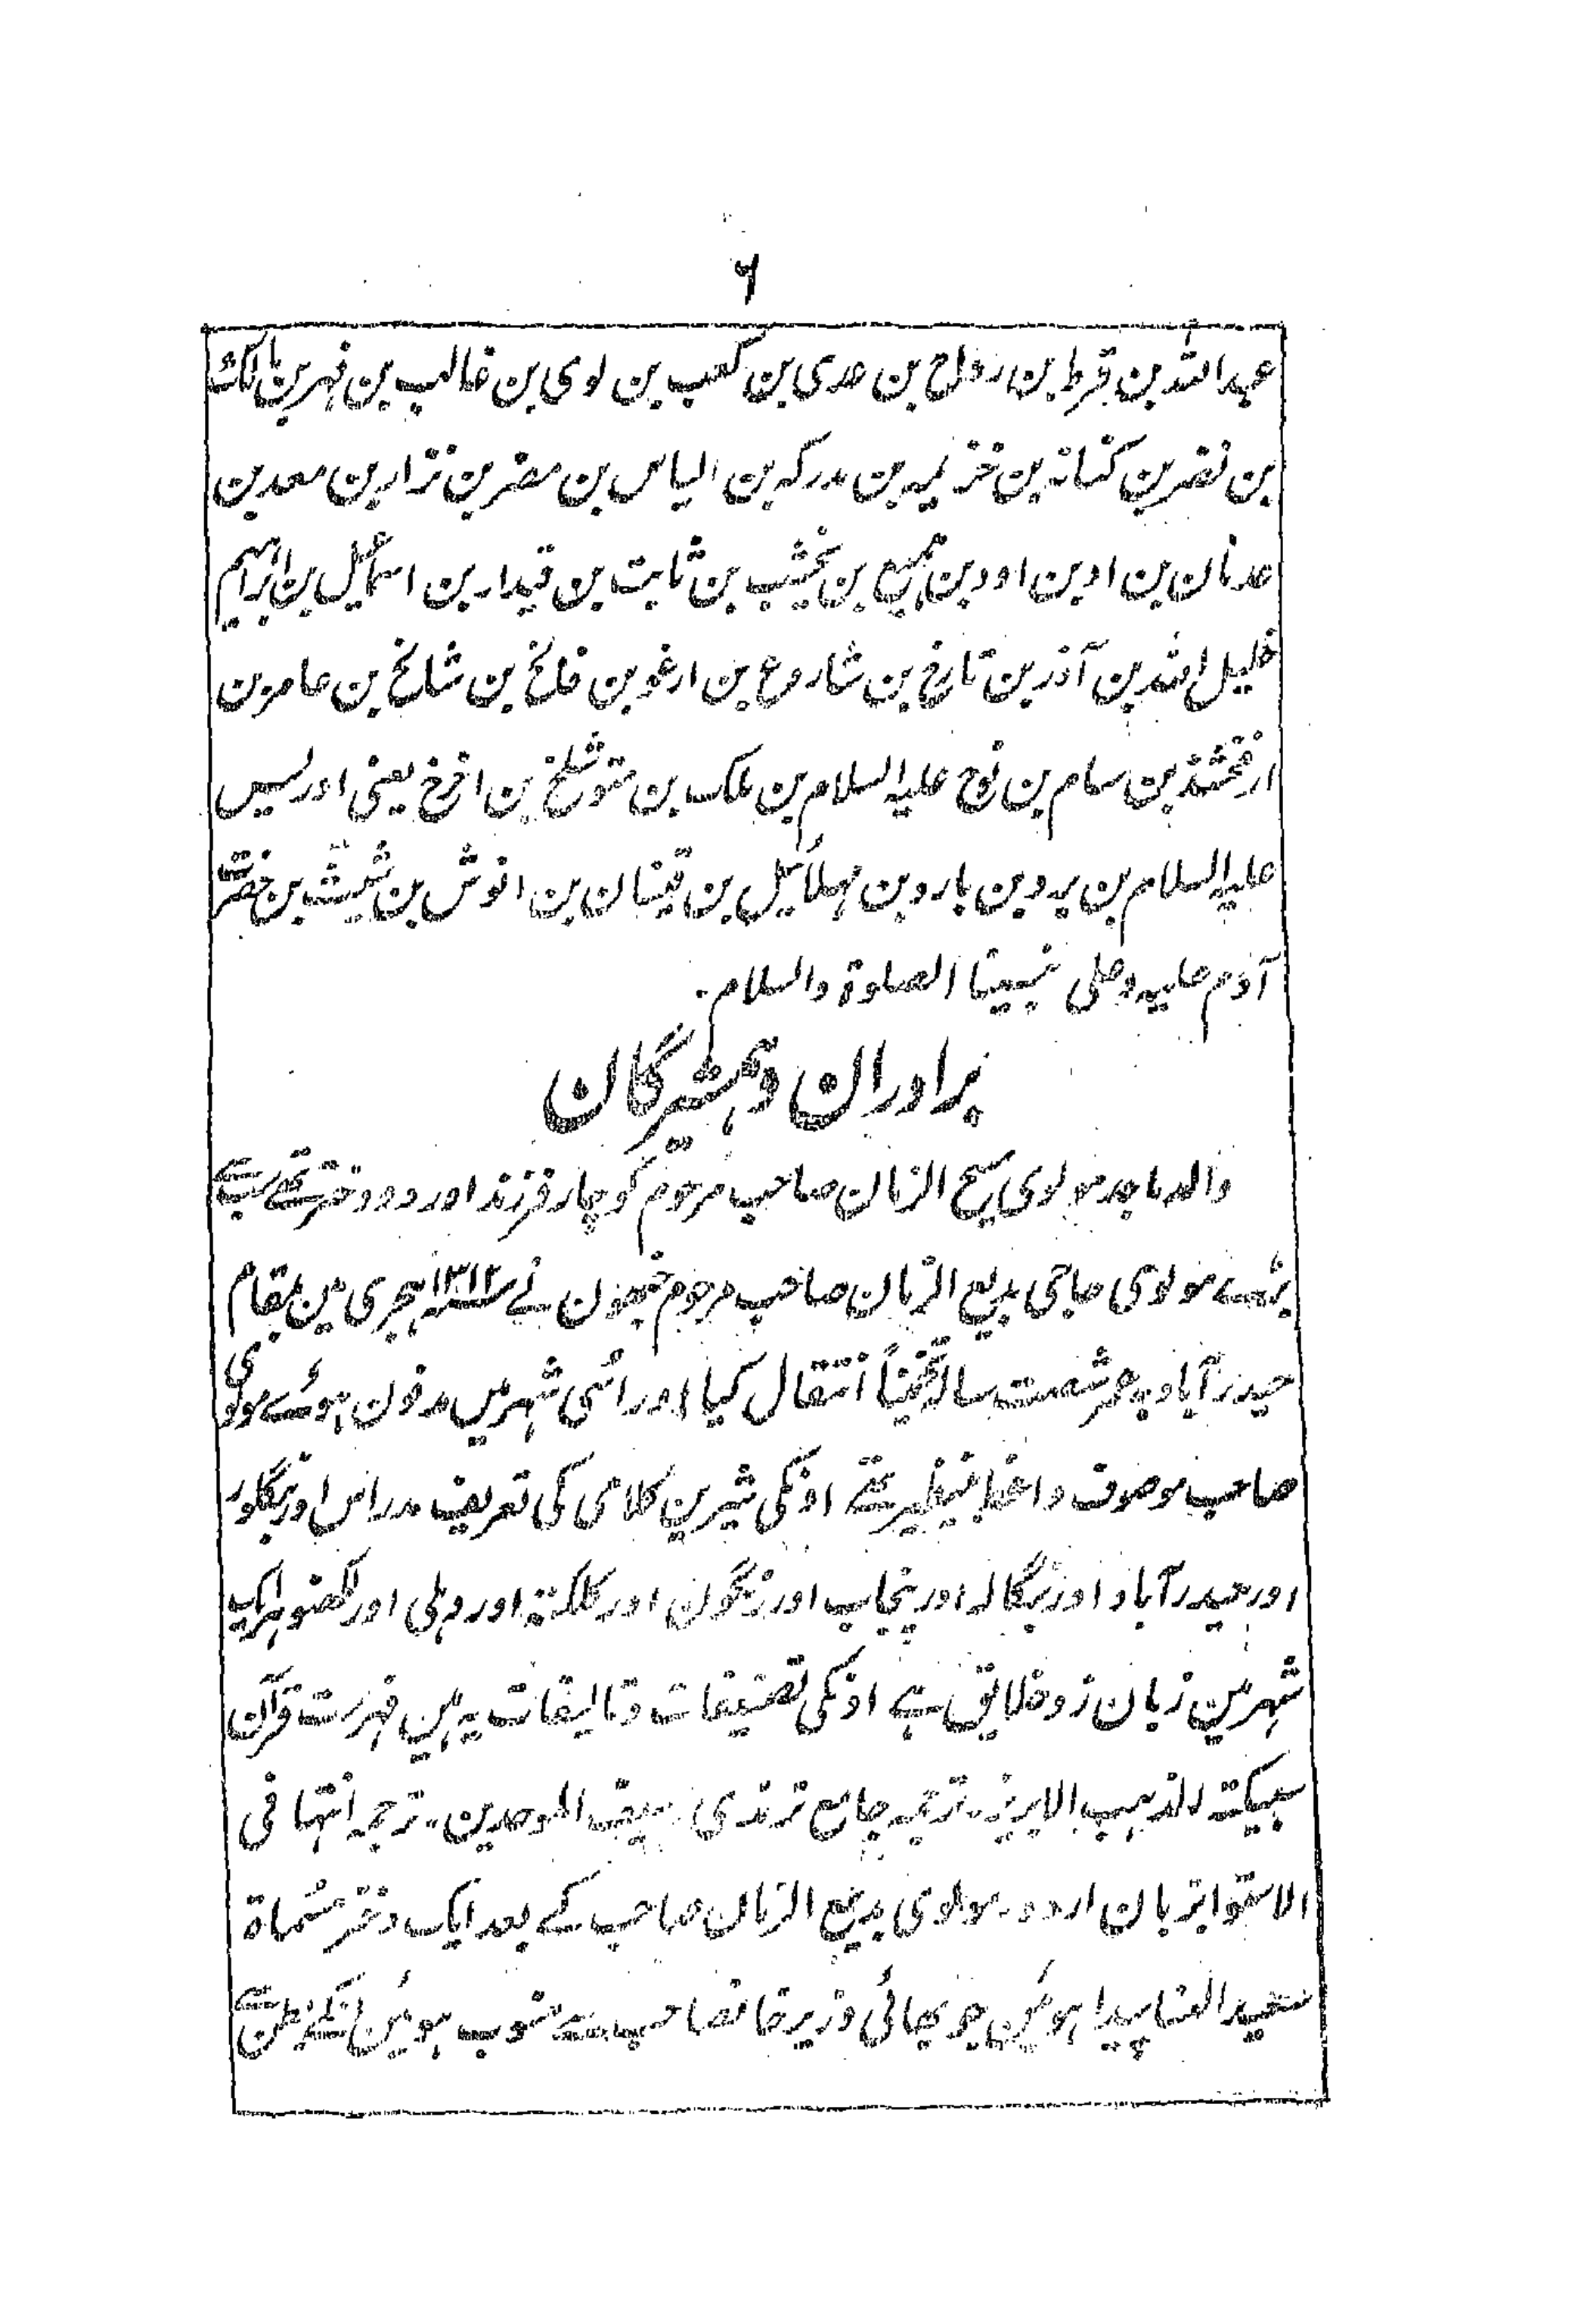 ۶
عبد اللہ بن قرط بن رواح بن عدی بن کعب بن لوی بن غالب بن فہر بن مالک
بن نضر بن کنانہ بن خزیمہ بن مدرکہ بن الیاس بن مضر بن نزار بن معد بن
عدنان بن اد بن اود بن ہمیع بن یخشب بن ثابت بن قیدار بن اسمٰعیل بن ابراہیم
خلیل اللہ بن آذر بن تارخ بن شاروع بن ارغو بن فالخ بن شالخ بن عامر بن
ارفخشذ بن سام بن نوح علیہ السلام بن ملک بن متوشلخ بن اخنوخ یعنی ادریس
علیہ السلام بن یرد بن بارد بن مہلائیل بن قینان بن انوش بن شیث بن حضرت
آدم علیہ وعلی نبینا الصلوۃ والسلام۔
برادران وہمشیرگان
والد ماجد مولوی مسیح الزمان صاحب مرحوم کو چار فرزند اور دو دختر تھے سب سے
بڑے مولوی حاجی بدیع الزمان صاحب مرحوم جنھون نے ۱۳۱۲ ہجری مین بمقام
حیدرآباد بہ عمر شصت سال تخمیناً انتقال کیا اور اُسی شہر میں مدفون ہوئے مولوی
صاحب موصوف واعظ بینظیر تھے اونکی شیرین کلامی کی تعریف مدراس اور بنگلور
اور حیدرآباد اور بنگالہ اور پنجاب اور رنگون اور کلکتہ اور دہلی اور لکھنو ہر ایک
شہر مین زبان زد خلایق ہے اونکی تصنیفات وتالیفات یہ ہین فہرست قرآن
سبیکتہ الذہب الابریز۔ ترجمہ جامع ترمذی۔ سیف الموحدین۔ ترجمہ انتہا فی
الاستوا بزبان اردو۔ مولوی بدیع الزمان صاحب کے بعد ایک دختر مسماۃ
سعید النسا پیدا ہوئین جو بھائی وزیر خانصاحب سے منسوب ہوئین انکے بطن سے